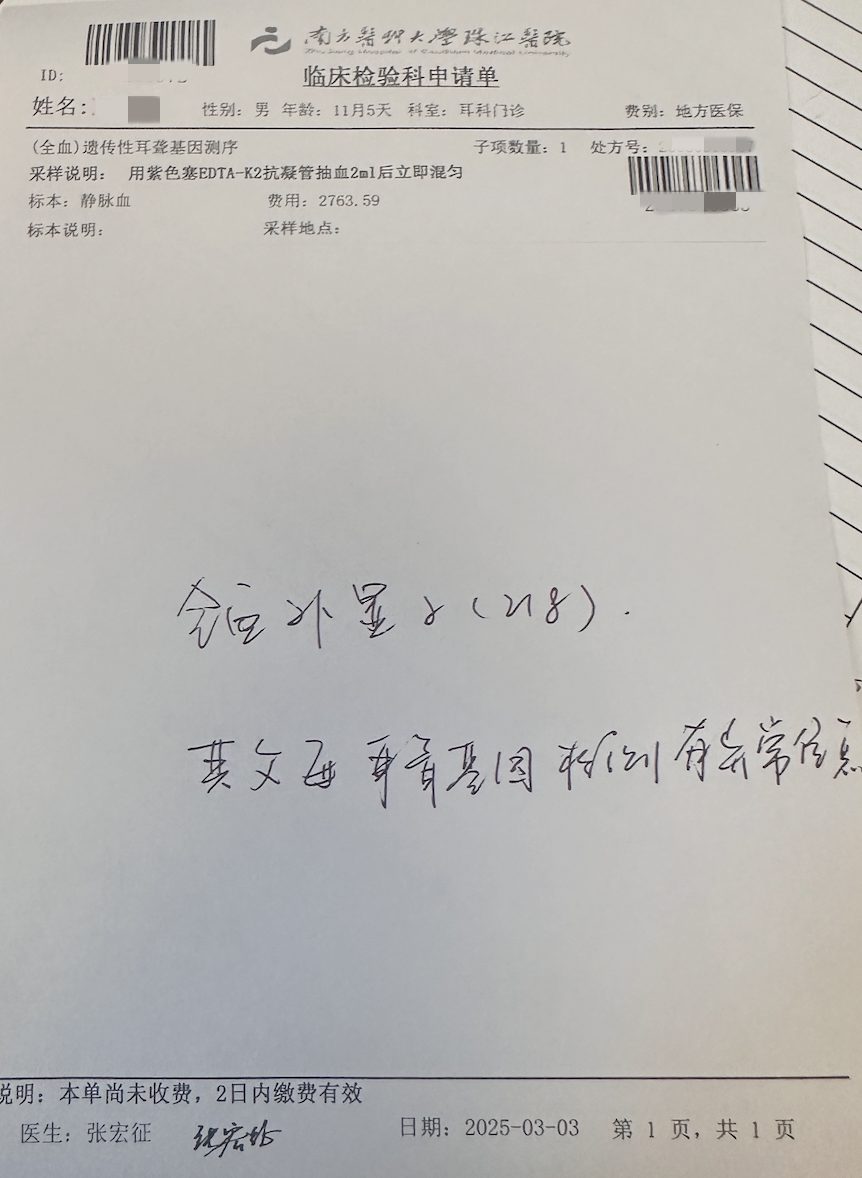 南方醫科大學珠江醫院
Zhujiang Hospital of Southern Medical University
ID:
临床检验科申请单
姓名: 性别: 男 年龄: 11月5天 科室: 耳科门诊 费别: 地方医保
(全血)遗传性耳聋基因测序 子项数量: 1 处方号:
采样说明: 用紫色塞EDTA-K2抗凝管抽血2ml后立即混匀
标本: 静脉血 费用: 2763.59
标本说明: 采样地点:
全外显子(218).
其父母耳聋基因检测有异常信息
说明: 本单尚未收费, 2日内缴费有效
医生: 张宏征 张宏征 日期: 2025-03-03 第 1 页, 共 1 页